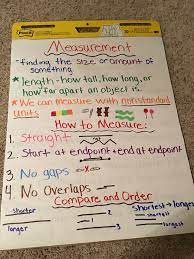 Measurement
-finding the size or amount of
something.
*length-how tall, how long, or
how far apart an object is.
*We can measure with nonstandard
units
How to Measure:
1. Straight
2. Start at endpoint + end at endpoint
3. No gaps
4 No Overlaps
Compare and Order
shorter
longer
1
2
3
Shortest → longest
shortest
longest